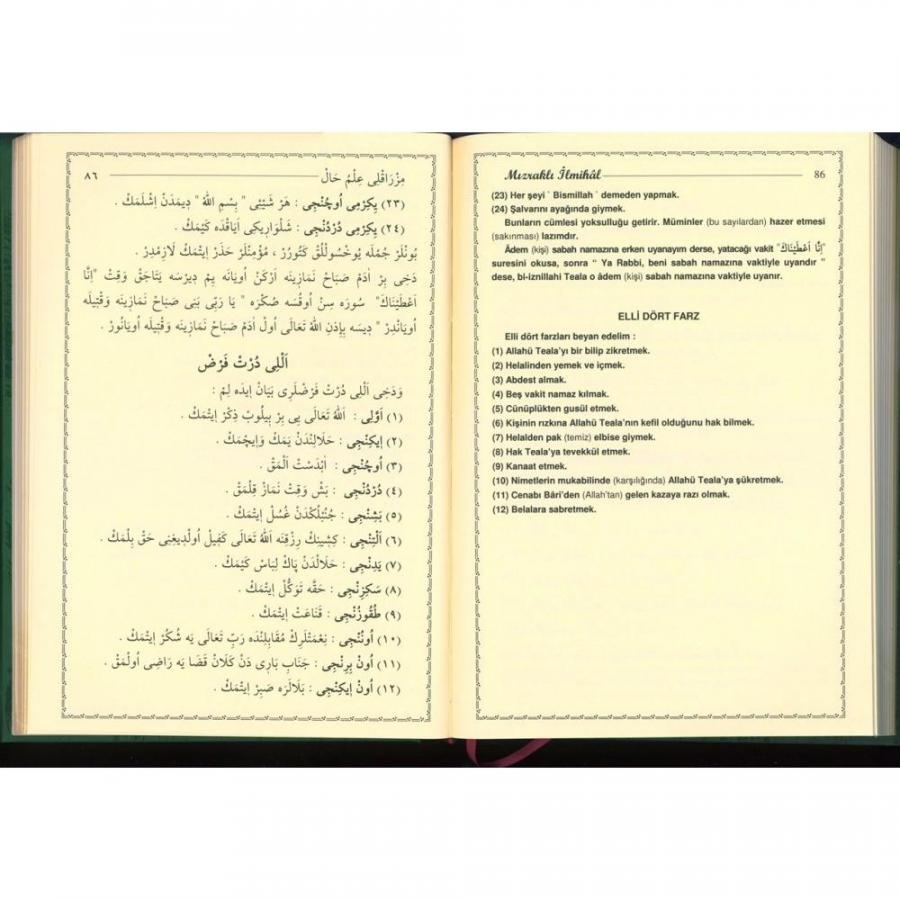 مِزْرَاقْلِى عِلْمُ حَالْ ٨٦
(٢٣) يِكِرْمِى اُوچُنْجِى : هَرْ شَيْئِى " بِسْمِ اللهْ " دِيمَدَنْ اِشْلَمَكْ .
(٢٤) يِكِرْمِى دُرْدُنْجِى : شَلْوَارِيكِى اَيَاقْدَه كَيْمَكْ .
بُونْلَرْ جُمْلَه يُوخْسُولْلُقْ كَتُورُرْ ، مُؤْمِنْلَرْ حَذَرْ اِيتْمَكْ لَازِمْدِرْ .
دَخِى بِرْ اٰدَمْ صَبَاحْ نَمَازِينَه اَرْكَنْ اُويَانَه يِمْ دِيرْسَه يَتَاجَقْ وَقِتْ "اِنَّا
اَعْطَيْنَاكَ" سُورَه سِنْ اُوقُسَه صُكْرَه " يَا رَبِّى بَنِى صَبَاحْ نَمَازِينَه وَقْتِيلَه
اُويَانْدِرْ " دِيسَه بِاِذْنِ اللهِ تَعَالَى اُولْ اٰدَمْ صَبَاحْ نَمَازِينَه وَقْتِيلَه اُويَانُورْ .
اَلْلِى دُرْتْ فَرْضْ
وَدَخِى اَلْلِى دُرْتْ فَرْضْلَرِى بَيَانْ اِيدَه لِمْ :
(١) اَوَّلِى : اَللهُ تَعَالَى يِى بِرْ بِيلُوبْ ذِكْرْ اِيتْمَكْ .
(٢) اِيكِنْجِى : حَلَالِنْدَنْ يَمَكْ وَاِيچْمَكْ .
(٣) اُوچُنْجِى : اٰبْدَسْتْ اَلْمَقْ .
(٤) دُرْدُنْجِى : بَشْ وَقِتْ نَمَازْ قِلْمَقْ .
(٥) بَشِنْجِى : جُنُبْلُكْدَنْ غُسْلْ اِيتْمَكْ .
(٦) اَلْتِنْجِى : كِشِينِكْ رِزْقِنَه اَللهُ تَعَالَى كَفِيلْ اُولْدِيغِنِى حَقْ بِلْمَكْ .
(٧) يَدِنْجِى : حَلَالْدَنْ پَاكْ لِبَاسْ كَيْمَكْ .
(٨) سَكِزِنْجِى : حَقَّه تَوَكُّلْ اِيتْمَكْ .
(٩) طُقُوزُنْجِى : قَنَاعَتْ اِيتْمَكْ .
(١٠) اُونُنْجِى : نِعْمَتْلَرِكْ مُقَابِلِنْدَه رَبِّ تَعَالَى يَه شُكُرْ اِيتْمَكْ .
(١١) اُونْ بِرِنْجِى : جَنَابِ بَارِى دَنْ كَلَانْ قَضَا يَه رَاضِى اُولْمَقْ .
(١٢) اُونْ اِيكِنْجِى : بَلَالَرَه صَبِرْ اِيتْمَكْ .
Mızraklı İlmihâl 86
(23) Her şeyi ` Bismillah ` demeden yapmak.
(24) Şalvarını ayağında giymek.
Bunların cümlesi yoksulluğu getirir. Müminler (bu sayılardan) hazer etmesi
(sakınması) lazımdır.
Âdem (kişi) sabah namazına erken uyanayım derse, yatacağı vakit "اِنَّا أَعْطَيْنَاكَ"
suresini okusa, sonra " Ya Rabbi, beni sabah namazına vaktiyle uyandır "
dese, bi-iznillahi Teala o âdem (kişi) sabah namazına vaktiyle uyanır.
ELLİ DÖRT FARZ
Elli dört farzları beyan edelim :
(1) Allahü Teala'yı bir bilip zikretmek.
(2) Helalinden yemek ve içmek.
(3) Abdest almak.
(4) Beş vakit namaz kılmak.
(5) Cünüplükten gusül etmek.
(6) Kişinin rızkına Allahü Teala'nın kefil olduğunu hak bilmek.
(7) Helalden pak (temiz) elbise giymek.
(8) Hak Teala'ya tevekkül etmek.
(9) Kanaat etmek.
(10) Nimetlerin mukabilinde (karşılığında) Allahü Teala'ya şükretmek.
(11) Cenabı Bâri'den (Allah'tan) gelen kazaya razı olmak.
(12) Belalara sabretmek.